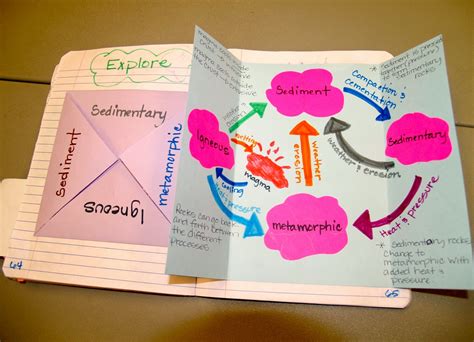 Explore
Sedimentary
Sediment
metamorphic
Igneous
64
Sediment
Compaction &
Cementation
* Sediment is pressed
together (pressure)
rocks
Igneous
Sedimentary
melting
magma
Weather
erosion
Weather & erosion
cooling
Heat & pressure
metamorphic
Rocks can go back
and forth between
the different
processes
* Sedimentary rocks
change to
metamorphic with
added heat &
pressure
65